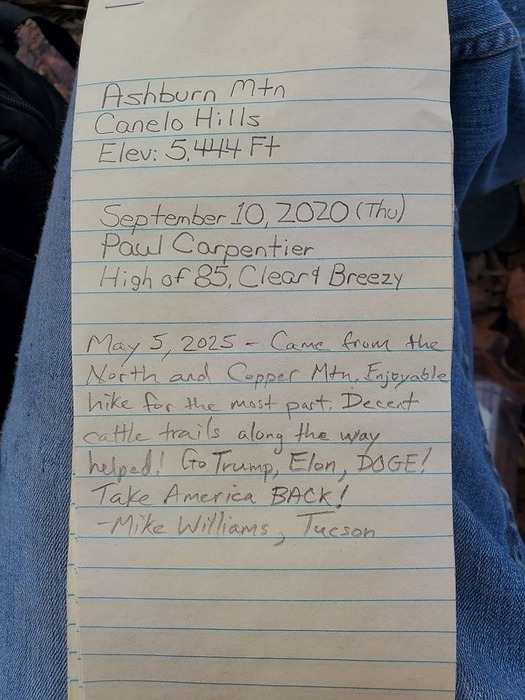 Ashburn Mtn
Canelo Hills
Elev: 5,444 Ft
September 10, 2020 (Thu)
Paul Carpentier
High of 85, Clear & Breezy
May 5, 2025 - Came from the
North and Copper Mtn. Enjoyable
hike for the most part. Decent
cattle trails along the way
helped! Go Trump, Elon, DOGE!
Take America BACK!
-Mike Williams, Tucson